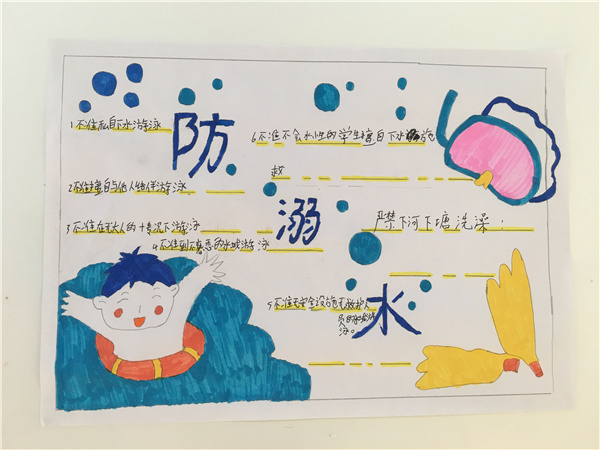 1.不准私自下水游泳
防
6.不准不会水性的学生擅自下水施
救
2.不准擅自与他人结伴游泳
溺
严禁下河下塘洗澡！
3不准在无大人的十情况下游泳
4.不准到不熟悉的水域游泳
5不准无安全设施无救护人
员的水域游
泳。
水